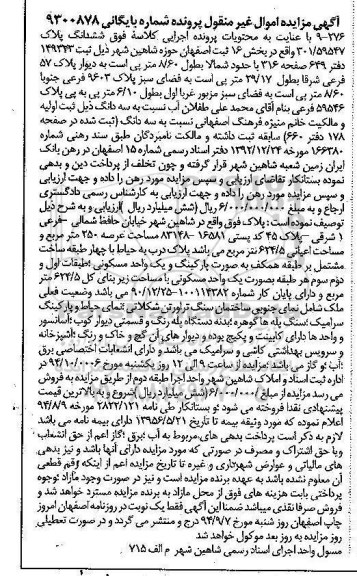 آگهی مزایده اموال غیر منقول پرونده شماره بایگانی ۹۳۰۰۸۷۸
۹-۲۷۶ با عنایت به محتویات پرونده اجرایی کلاسه فوق ششدانگ پلاک
۳۰۱/۵۹۵۴۷ واقع در بخش ۱۶ ثبت اصفهان حوزه شاهین شهر ذیل ثبت ۱۴۹۳۴۳
دفتر ۶۴۹ صفحه ۳۱۶ با حدود شمالا بطول ۸/۶۰ متر پی است به دیوار پلاک ۵۷
فرعی شرقا بطول ۲۹/۱۷ متر پی است به فضای سبز پلاک ۹۶۰۳ فرعی جنوبا
بطول ۸/۶۰ متر پی است به فضای سبز مزبور غربا اول بطول ۶/۱۰ متر پی به پی
۵۹۵۴۶ فرعی بنام آقای محمد علی طفلان آب نسبت به سه دانگ ذیل ثبت اولیه
و مالکیت خانم منیژه فرهنگ اصفهانی نسبت به سه دانگ (ثبت شده در صفحه
۱۷۸ دفتر ۶۶۰) سابقه ثبت داشته و مالکت نامبردگان طبق سند رهنی شماره
۱۶۶۳۸۰ مورخه ۱۳۹۲/۱۲/۲۴ دفتر اسناد رسمی شماره ۱۵ اصفهان در رهن بانک
ایران زمین شعبه شاهین شهر قرار گرفته و چون تخلف از پرداخت دین و بدهی
نموده بستانکار تقاضای ارزیابی و سپس مزایده مورد رهن را داده و جهت ارزیابی
و سپس مزایده مورد رهن را داده و جهت ارزیابی به کارشناس رسمی دادگستری
ارجاع و به مبلغ ۶/۰۰۰/۰۰۰/۰۰۰ ریال (شش میلیارد ریال) ارزیابی و به شرح ذیل
توصیف نموده است: پلاک فوق واقع در شاهین شهر خیابان حافظ شمالی – فرعی
۱ شرقی – پلاک ۴۵ کد پستی ۱۶۵۸۱–۸۳۱۴۸ مساحت عرصه ۲۵۰ متر مربع و
مساحت اعیانی ۶۲۴/۵ متر مربع می باشد پلاک درب به حیاط با چهار طبقه ساخت
مشتمل بر طبقه همکف به صورت پارکینگ و یک واحد مسکونی؛ طبقات اول و
دوم سوم هر طبقه بصورت یک واحد مسکونی با مساحت زیر بنای کل ۶۲۴/۵ متر
مربع و دارای پایان کار شماره ۱۰۰۱۱۴۳۸۲–۹۰/۱۲/۲۵ می باشد وضعیت فعلی
ملک شامل نمای جنوبی ساختمان سنگ تراورتن شکلاتی؛ نمای حیاط و پارکینگ
سرامیک؛ سنگ پله ها گوهره؛ بدنه دستگاه پله رنگ و قسمتی دیوار کوب؛ آسانسور
و واحد ها دارای کابینت و پکیج بوده و دیوار های آن گچ و خاک و رنگ؛ آشپزخانه
و سرویس بهداشتی کاشی و سرامیک می باشد و دارای انشعابات اختصاصی برق
؛آب؛ و گاز می باشد؛ مزایده از ساعت ۹ الی ۱۲ روز یکشنبه مورخ ۹۴/۱۰/۰۶ در
اداره ثبت اسناد و املاک شاهین شهر واحد اجرا طبقه دوم از طریق مزایده به فروش
می رسد مزایده از مبلغ ۶/۰۰۰/۰۰۰/۰۰۰ (شش میلیارد ریال) شروع و به بالاترین قیمت
پیشنهادی نقدا فروخته می شود ؛و بستانکار طی نامه ۲۸۲۲/۱۲۱ مورخه ۹۴/۸/۹
اعلام نموده که مورد وثیقه بیمه تا تاریخ ۱۳۹۵۶/۵/۲۱ دارای بیمه نامه می باشد
لازم به ذکر است پرداخت بدهی های مربوط به آب ؛برق ؛گاز اعم از حق انشعاب
ویا حق اشتراک و مصرف در صورتی که مورد مزایده دارای آنها باشد و نیز بدهی
های مالیاتی و عوارض شهرداری و غیره تا تاریخ مزایده اعم از اینکه رقم قطعی
آن معلوم نشده باشد به عهده برنده مزایده است و نیز در صورت وجود مازاد ؛وجوه
پرداختی بابت هزینه های فوق از محل مازاد به برنده مزایده مسترد خواهد شد و
فروش صرفا نقدی میباشد ضمنا این آگهی فقط یک نوبت در روزنامه اصفهان امروز
چاپ اصفهان روز شنبه مورخ ۹۴/۹/۷ درج و منتشر می گردد و در صورت تعطیلی
روز مزایده به روز بعد موکول خواهد شد
مسول واحد اجرای اسناد رسمی شاهین شهر م الف ۷۱۵